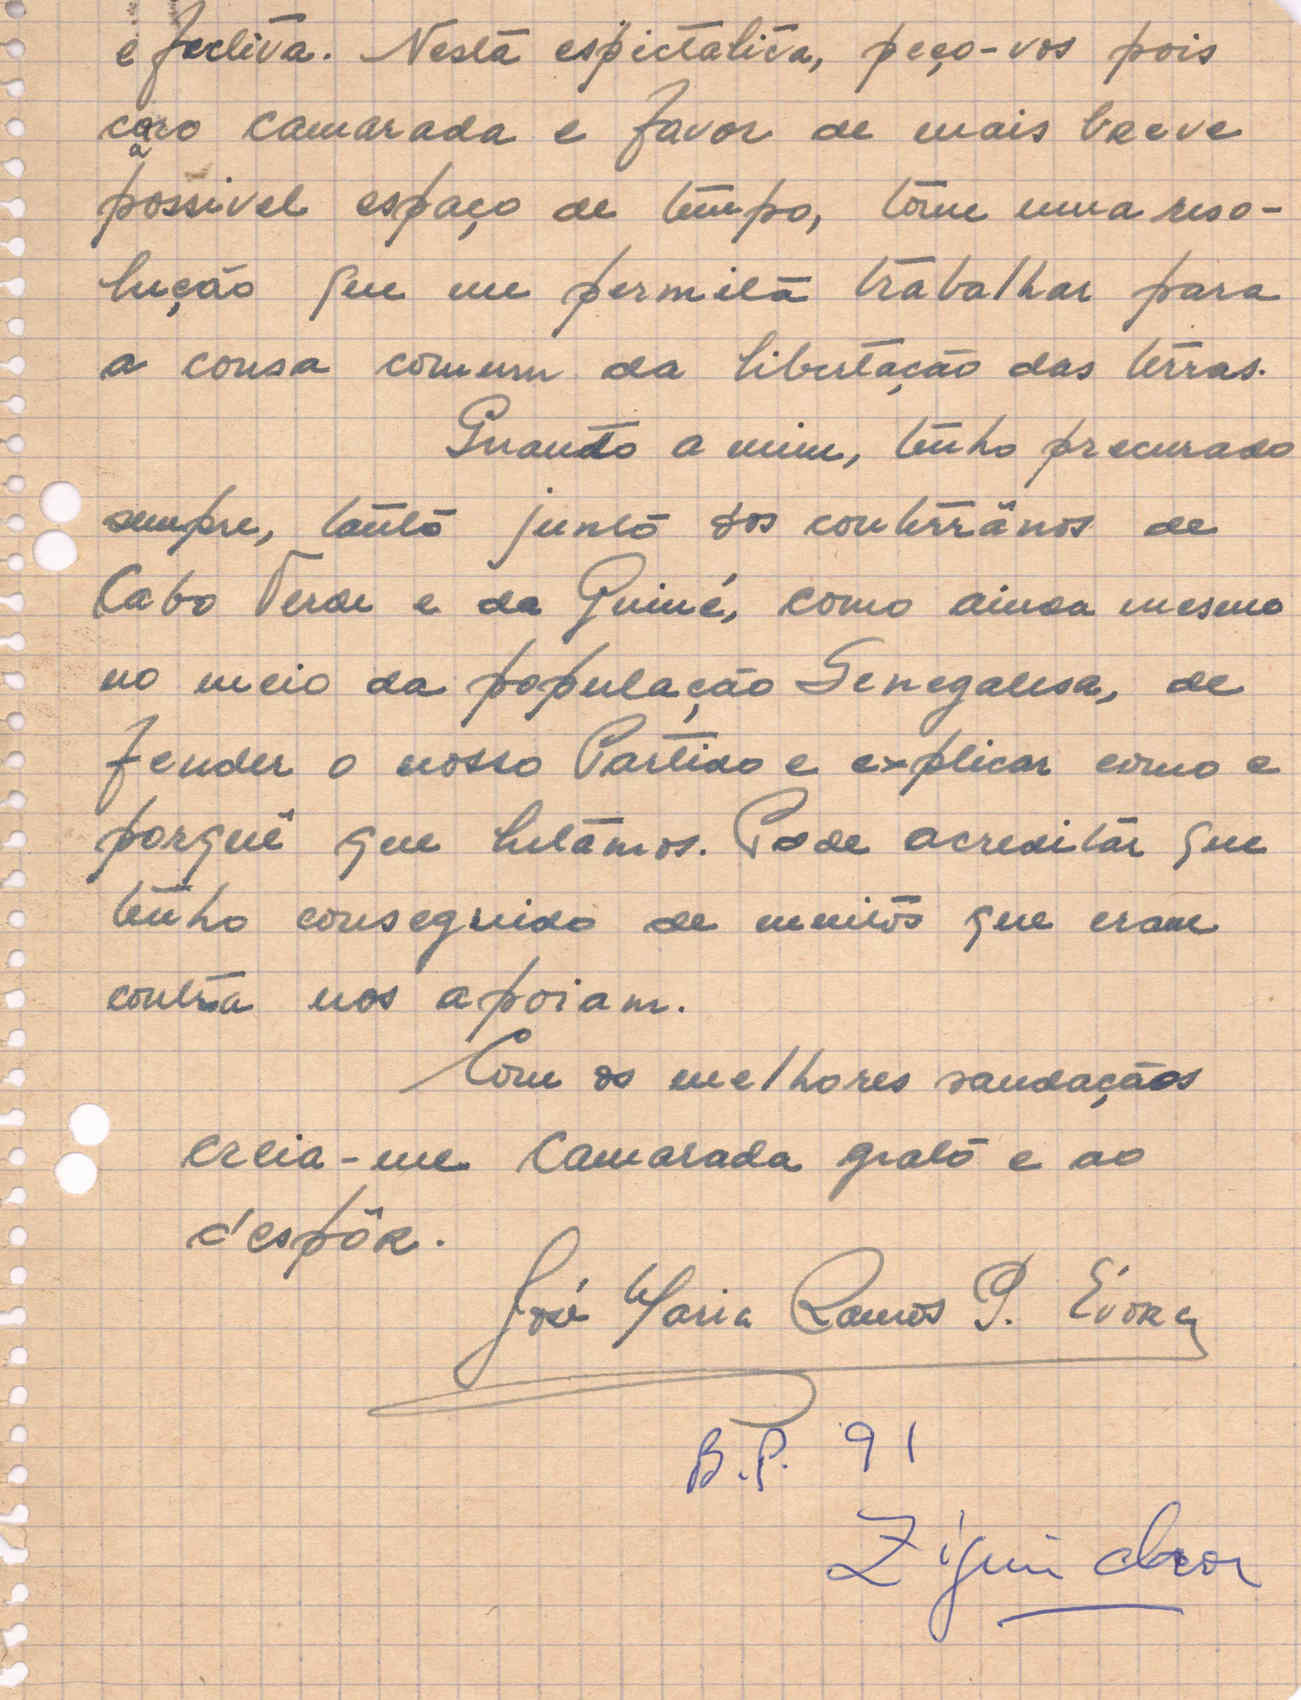 efectiva. Nesta espictativa, peço-vos pois
caro camarada e favor de mais breve
possivel espaço de tempo, tome uma reso-
lução que me permita trabalhar para
a causa comum da libertação das terras.
Quanto a mim, tenho procurado
sempre, tanto junto dos conterrânos de
Cabo Verde e da Guiné, como ainda mesmo
no meio da população Senegalesa, de
fender o nosso Partido e explicar como e
porquê que lutâmos. Pode acreditar que
tenho conseguido de muitos que eram
contra nos apoiam.
Com os melhores saudaçãos
creia-me camarada grato e ao
despôr.
José Maria Ramos P. Évora
B.P. 91
Ziguinchor